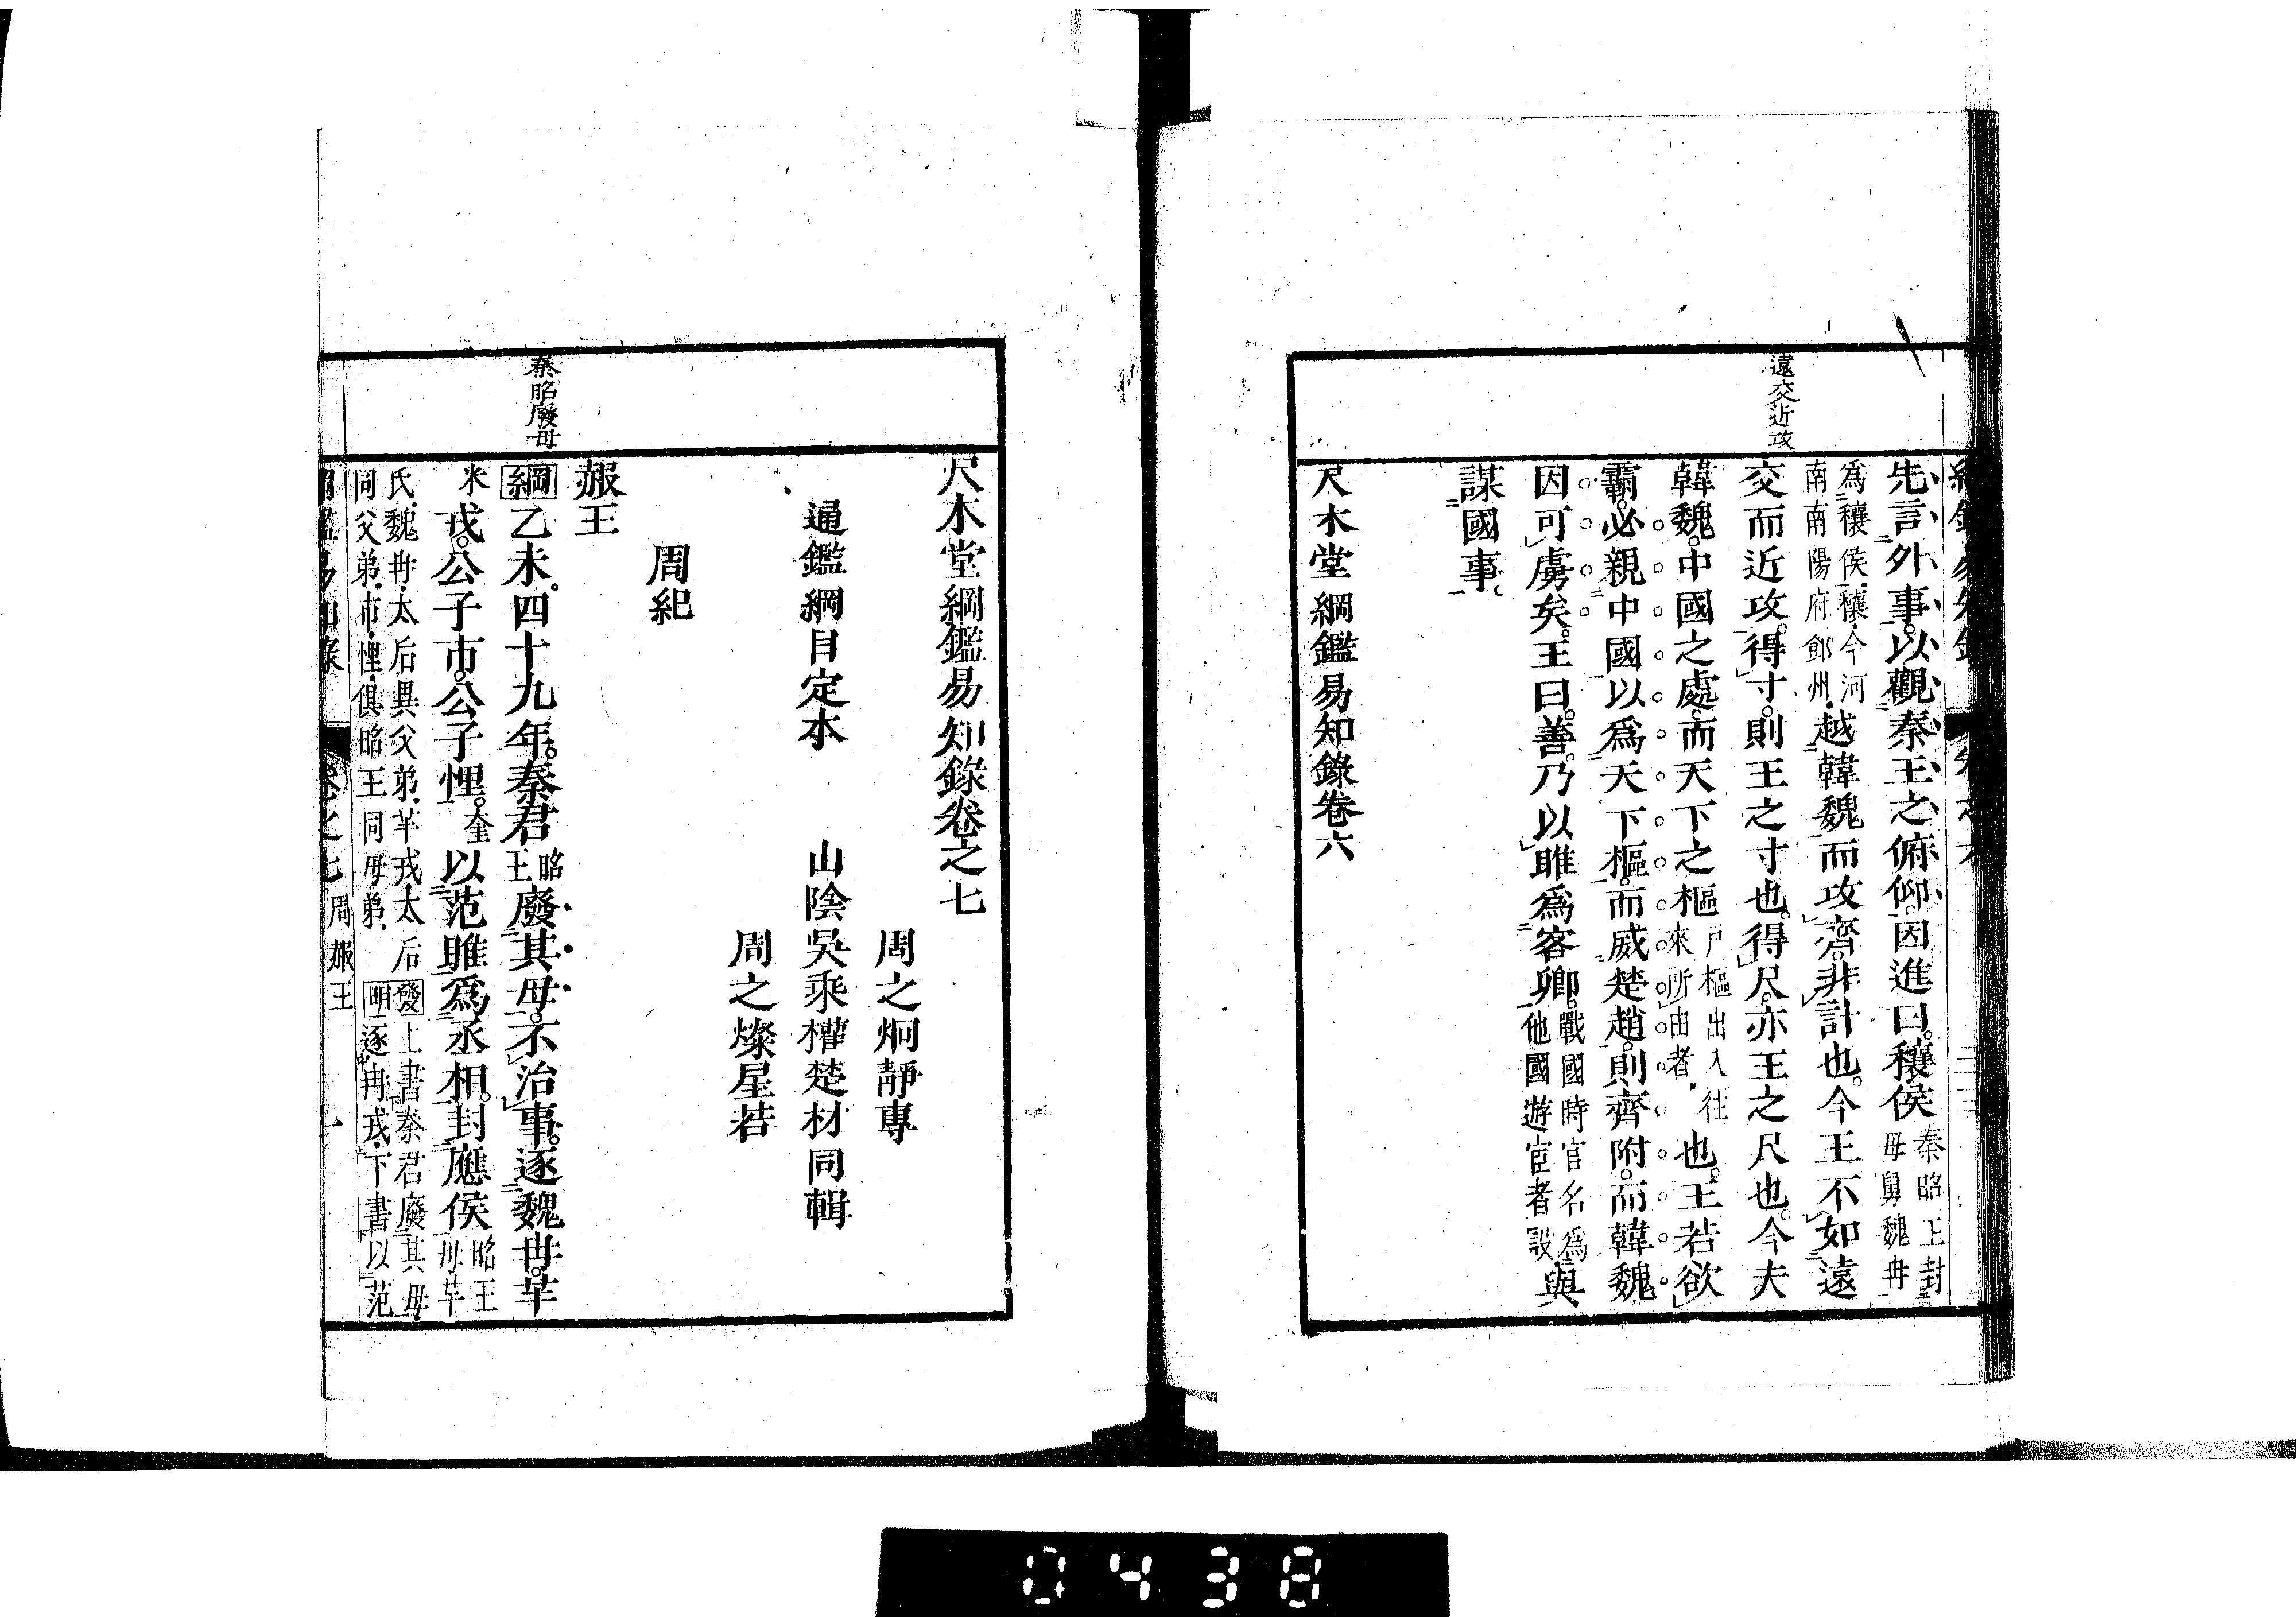 遠交近攻
先言外事。以觀秦王之俯仰。因進曰。穰侯秦昭王封母舅魏冉
爲穰侯。穰。今河南南陽府鄧州。越韓魏而攻齊。非計也。今王不如遠
交而近攻。得寸。則王之寸也。得尺。亦王之尺也。今夫
韓魏。中國之處。而天下之樞戸樞出入往來所由者。也。王若欲
霸。必親中國以爲天下樞。而威楚趙。則齊附。而韓魏
因可虜矣。王曰。善。乃以雎爲客卿。戰國時官名爲他國遊宦者設。與
謀國事。
尺木堂綱鑑易知錄卷六
尺木堂綱鑑易知錄卷之七
周之炯靜專
通鑑綱目定本 山陰吳乘權楚材同輯
周之燦星若
周紀
赧王
秦昭廢母
綱乙未。四十九年。秦君昭王廢其母。不治事。逐魏冉。芈
米戎。公子市。公子悝。奎以范雎爲丞相。封應侯昭王母芈
氏。魏冉。太后異父弟。芈戎太后同父弟。市。悝。俱昭王同母弟。發明上書秦君廢其母逐冉戎。下書以范
卷之七 周赧王 一
0438